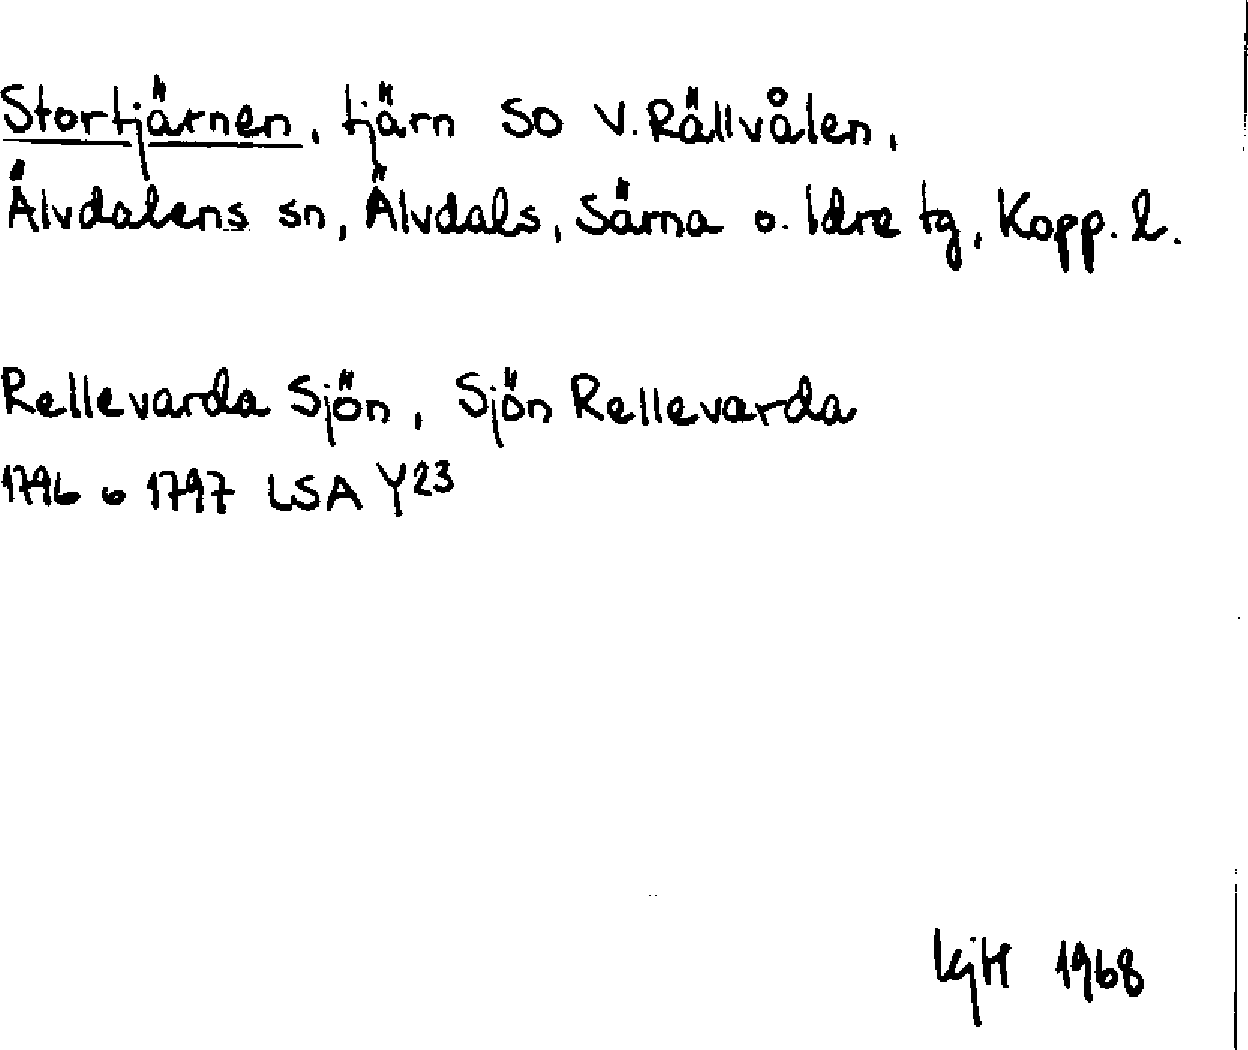 Stortjärnen, tjärn SO V. Rällvålen,
Älvdalens sn, Älvdals, Särna o. Idre tg, Kopp. l.
Rellevarda Sjön, Sjön Rellevarda
1796 o 1797 LSA Y23
KjH 1968